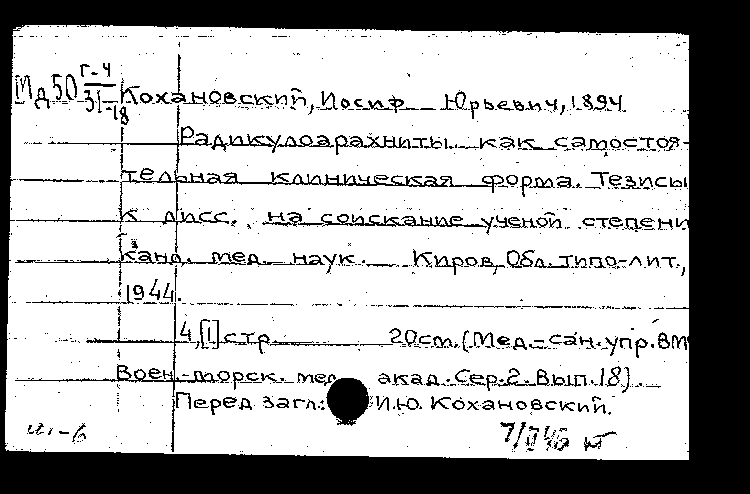 Мд50 Г-4
31-18
Кохановский, Иосиф Юрьевич, 1894
Радикулоарахниты как самостоя-
тельная клиническая форма. Тезисы
к дисс. на соискание ученой степени
канд. мед. наук. Киров, Обл. типо-лит.,
1944.
4,[1] стр. 20см. (Мед.-сан. упр. ВМ
Воен.-морск. мед. акад. Сер.2. Вып.18).
Перед загл.: И.Ю. Кохановский.